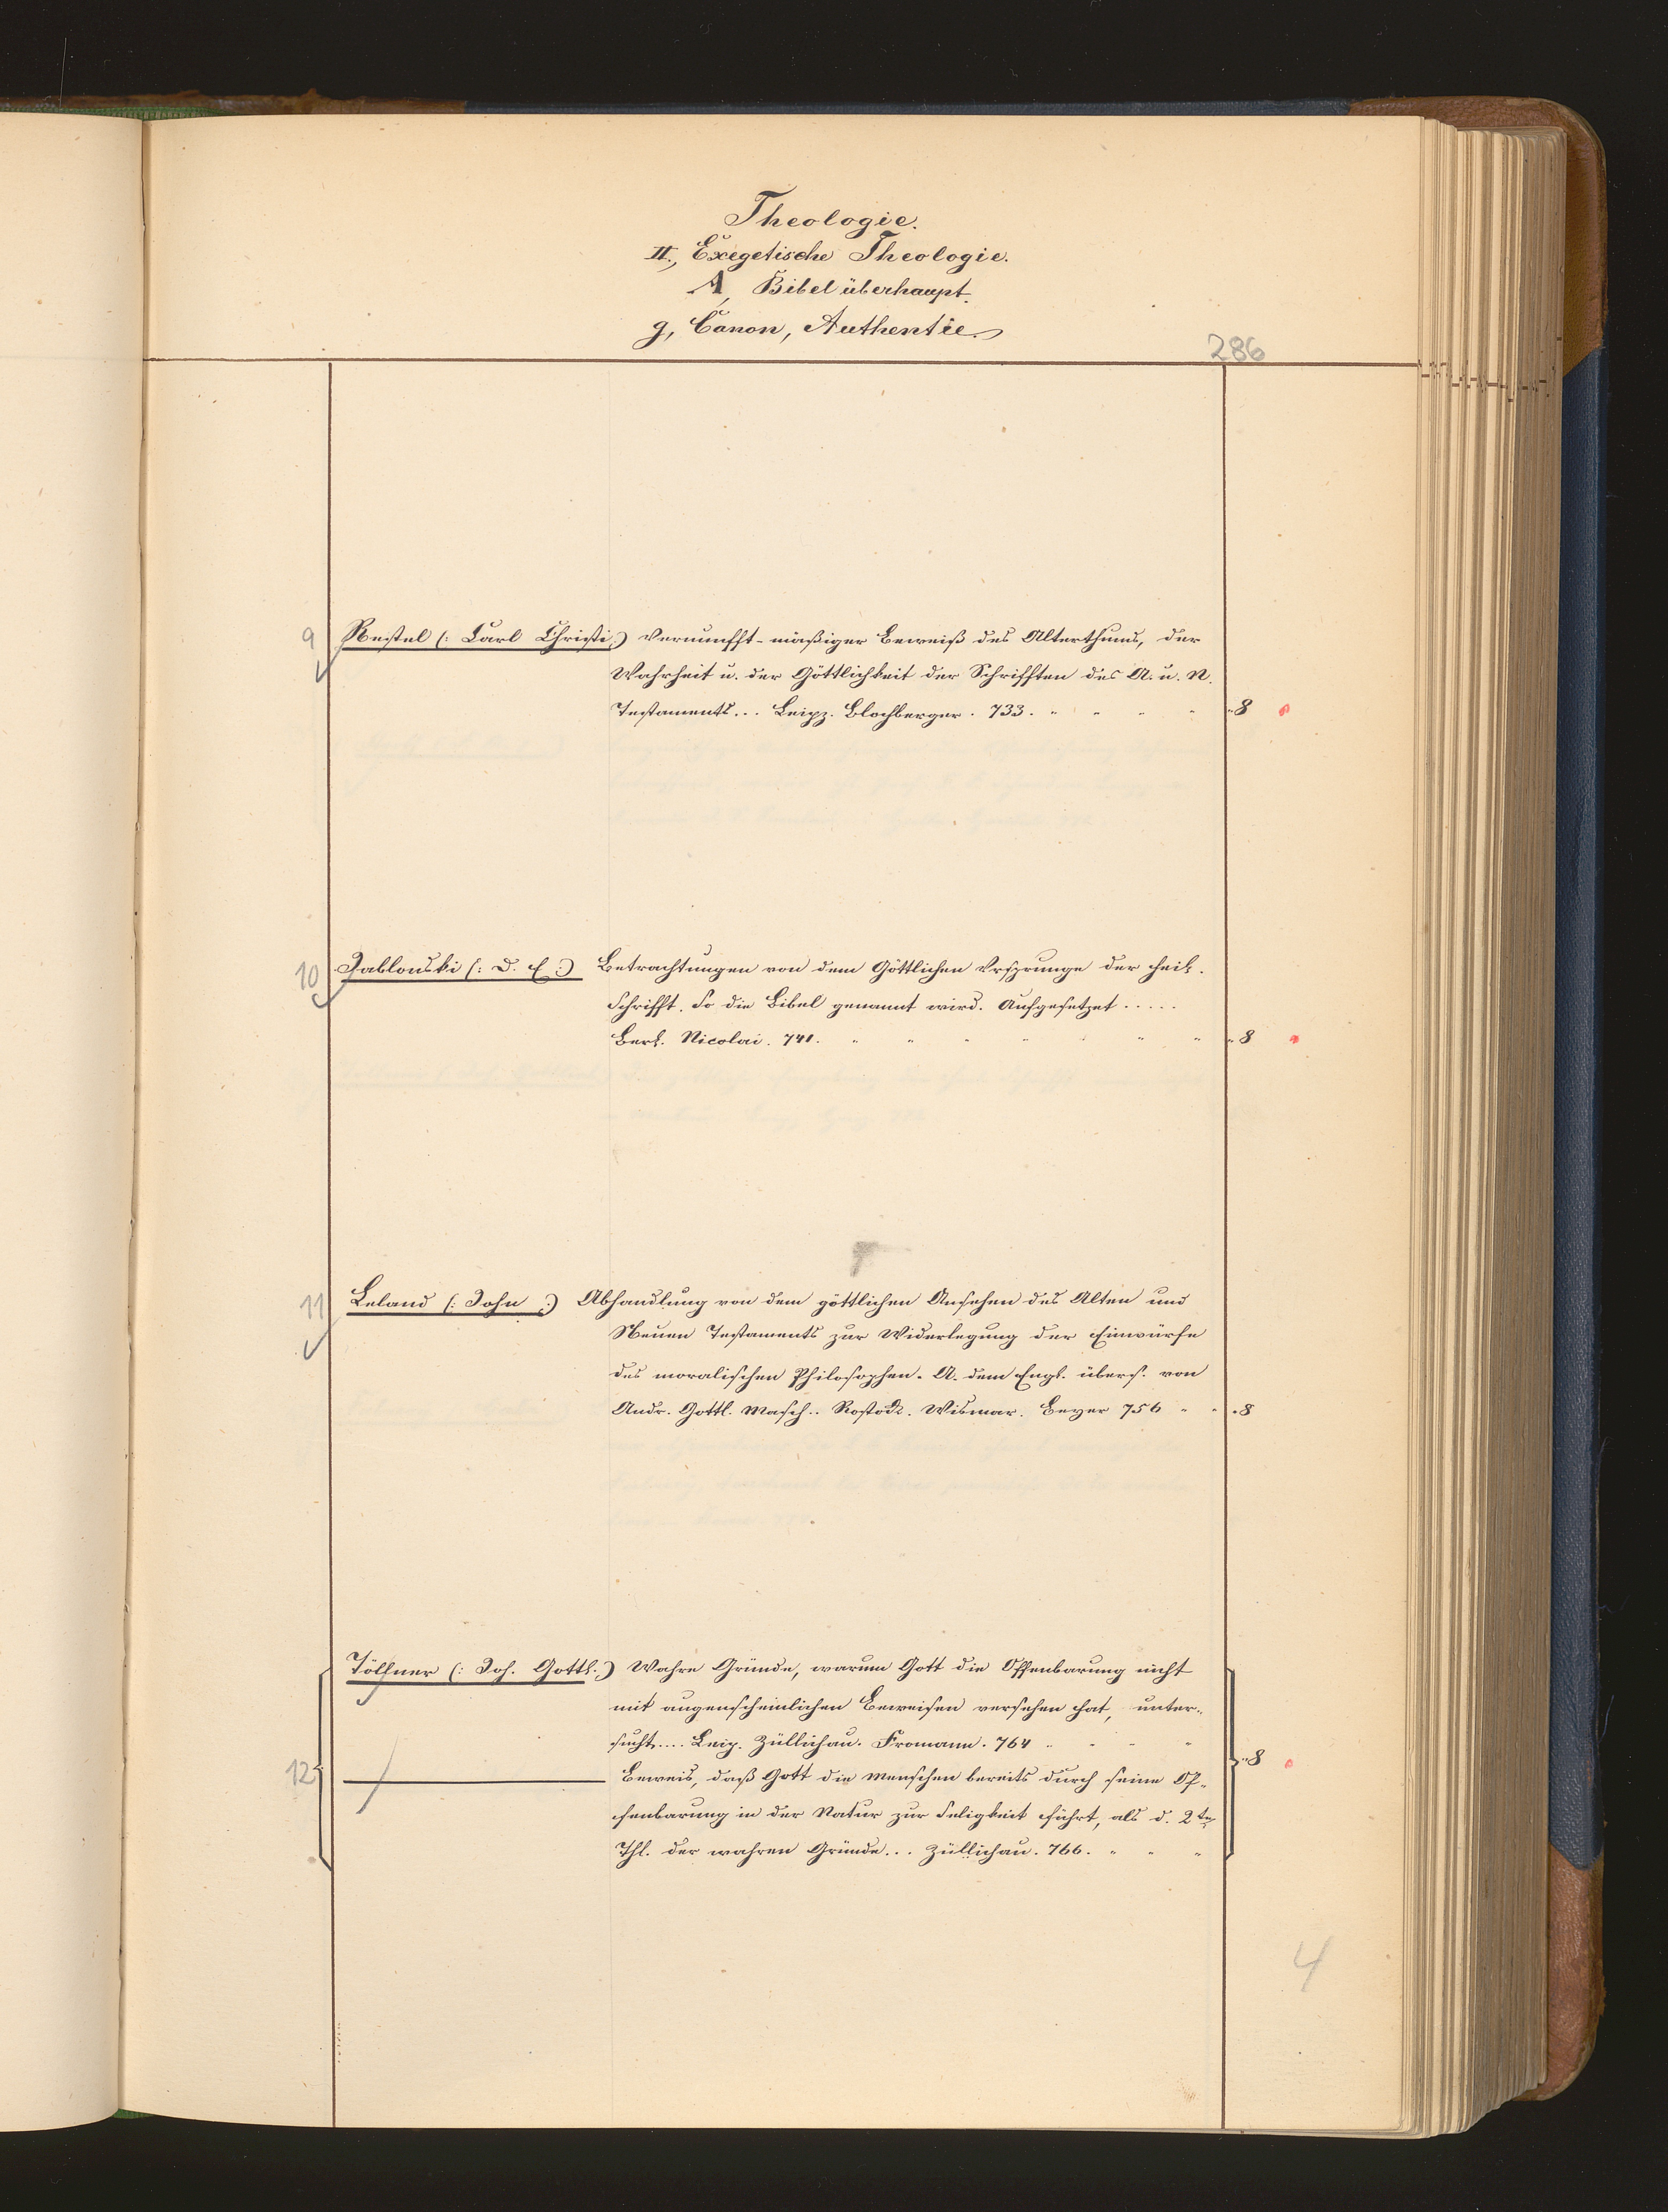 Theologie.
II., Exegetische Theologie.
A, Bibel überhaupt.
g, Canon, Authentie.
286
9 Nestel (: Carl Christi:) Vernunfft-mäßiger Beweiß des Alterthums, der
Wahrheit u. der Göttlichkeit der Schrifften des A. u. N.
Testaments... Leipz. Blochberger. 733. " 8
10 Jablonski (: D. E:) Betrachtungen von dem Göttlichen Ursprunge der heil.
Schrifft. So die Bibel genannt wird. Aufgesetzet .....
Berl. Nicolai. 741. " 8
11 Leland (: John :) Abhandlung von dem göttlichen Ansehen des Alten und
Neuen Testaments zur Widerlegung der Einwürfe
des moralischen Philosophen. A. dem Engl. übers. von
Andr. Gottl. Masch.. Rostock. Wismar. Beyer 756 " 8
Töllner (: Joh. Gottl:) Wahre Gründe, warum Gott die Offenbarung nicht
mit augenscheinlichen Beweisen versehen hat, unter-
sucht.... Leip. Züllichau. Fromann. 764 "
12 ——— Beweis, daß Gott die Menschen bereits durch seine Of- " 8
fenbarung in der Natur zur Seligkeit führt, als d. 2te
Thl. der wahren Gründe... Züllichau. 766. "
4